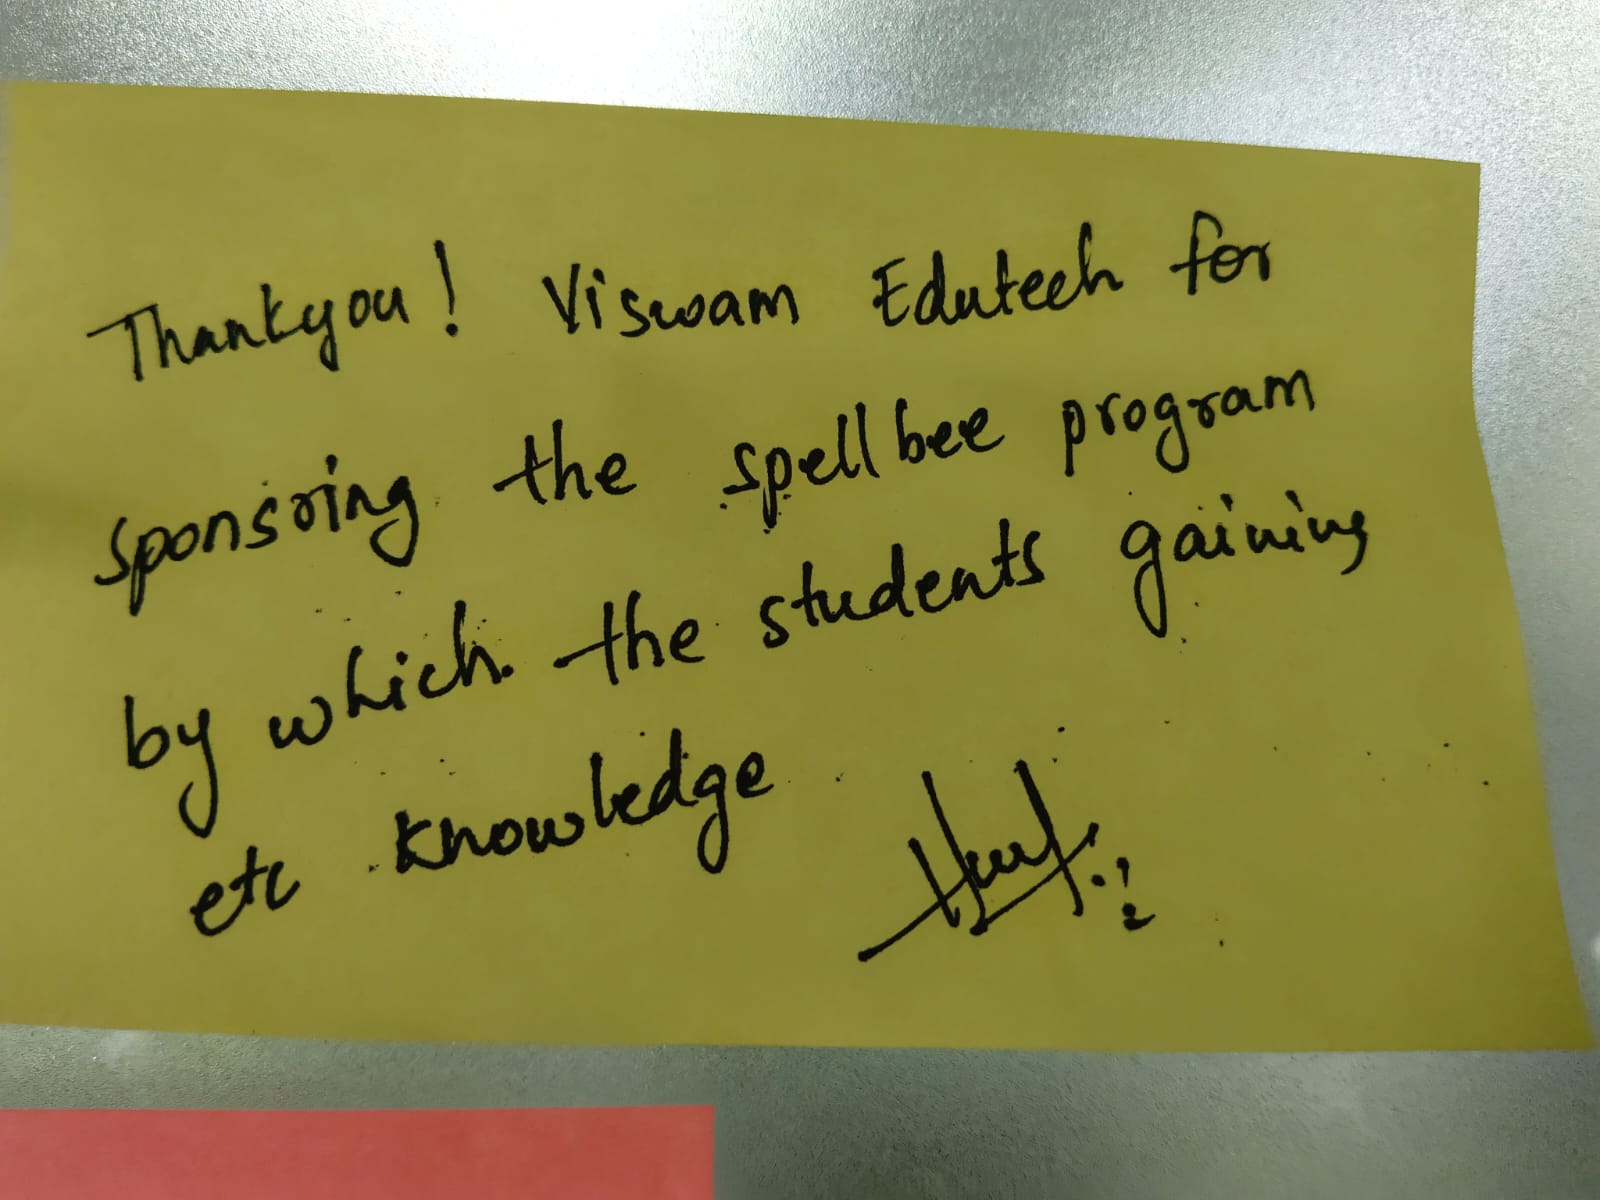 Thankyou! Viswam Edutech for
sponsring the spellbee program
by which the students gaining
etc knowledge